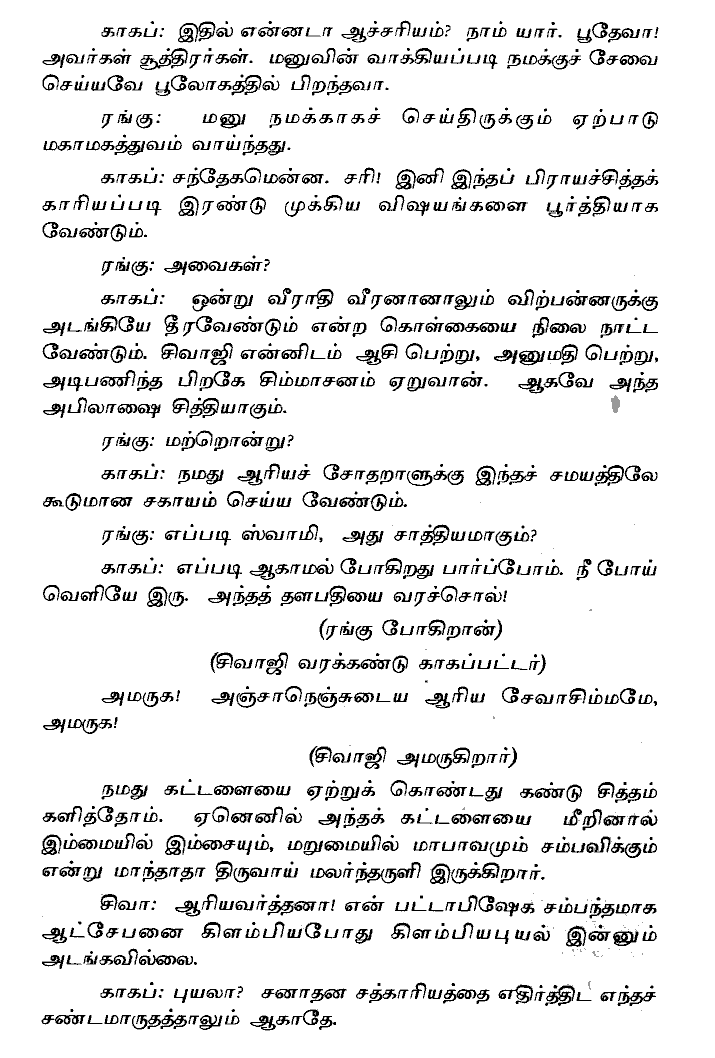 காகப்: இதில் என்னடா ஆச்சரியம்? நாம் யார். பூதேவா!
அவர்கள் சூத்திரர்கள். மனுவின் வாக்கியப்படி நமக்குச் சேவை
செய்யவே பூலோகத்தில் பிறந்தவா.
ரங்கு: மனு நமக்காகச் செய்திருக்கும் ஏற்பாடு
மகாமகத்துவம் வாய்ந்தது.
காகப்: சந்தேகமென்ன. சரி! இனி இந்தப் பிராயச்சித்தக்
காரியப்படி இரண்டு முக்கிய விஷயங்களை பூர்த்தியாக
வேண்டும்.
ரங்கு: அவைகள்?
காகப்: ஒன்று வீராதி வீரனானாலும் விற்பன்னருக்கு
அடங்கியே தீரவேண்டும் என்ற கொள்கையை நிலை நாட்ட
வேண்டும். சிவாஜி என்னிடம் ஆசி பெற்று, அனுமதி பெற்று,
அடிபணிந்த பிறகே சிம்மாசனம் ஏறுவான். ஆகவே அந்த
அபிலாஷை சித்தியாகும்.
ரங்கு: மற்றொன்று?
காகப்: நமது ஆரியச் சோதறாளுக்கு இந்தச் சமயத்திலே
கூடுமான சகாயம் செய்ய வேண்டும்.
ரங்கு: எப்படி ஸ்வாமி, அது சாத்தியமாகும்?
காகப்: எப்படி ஆகாமல் போகிறது பார்ப்போம். நீ போய்
வெளியே இரு. அந்தத் தளபதியை வரச்சொல்!
(ரங்கு போகிறான்)
(சிவாஜி வரக்கண்டு காகப்பட்டர்)
அமருக! அஞ்சாநெஞ்சுடைய ஆரிய சேவாசிம்மமே,
அமருக!
(சிவாஜி அமருகிறார்)
நமது கட்டளையை ஏற்றுக் கொண்டது கண்டு சித்தம்
களித்தோம். ஏனெனில் அந்தக் கட்டளையை மீறினால்
இம்மையில் இம்சையும், மறுமையில் மாபாவமும் சம்பவிக்கும்
என்று மாந்தாதா திருவாய் மலர்ந்தருளி இருக்கிறார்.
சிவா: ஆரியவர்த்தனா! என் பட்டாபிஷேக சம்பந்தமாக
ஆட்சேபனை கிளம்பியபோது கிளம்பியபுயல் இன்னும்
அடங்கவில்லை.
காகப்: புயலா? சனாதன சத்காரியத்தை எதிர்த்திட எந்தச்
சண்டமாருதத்தாலும் ஆகாதே.